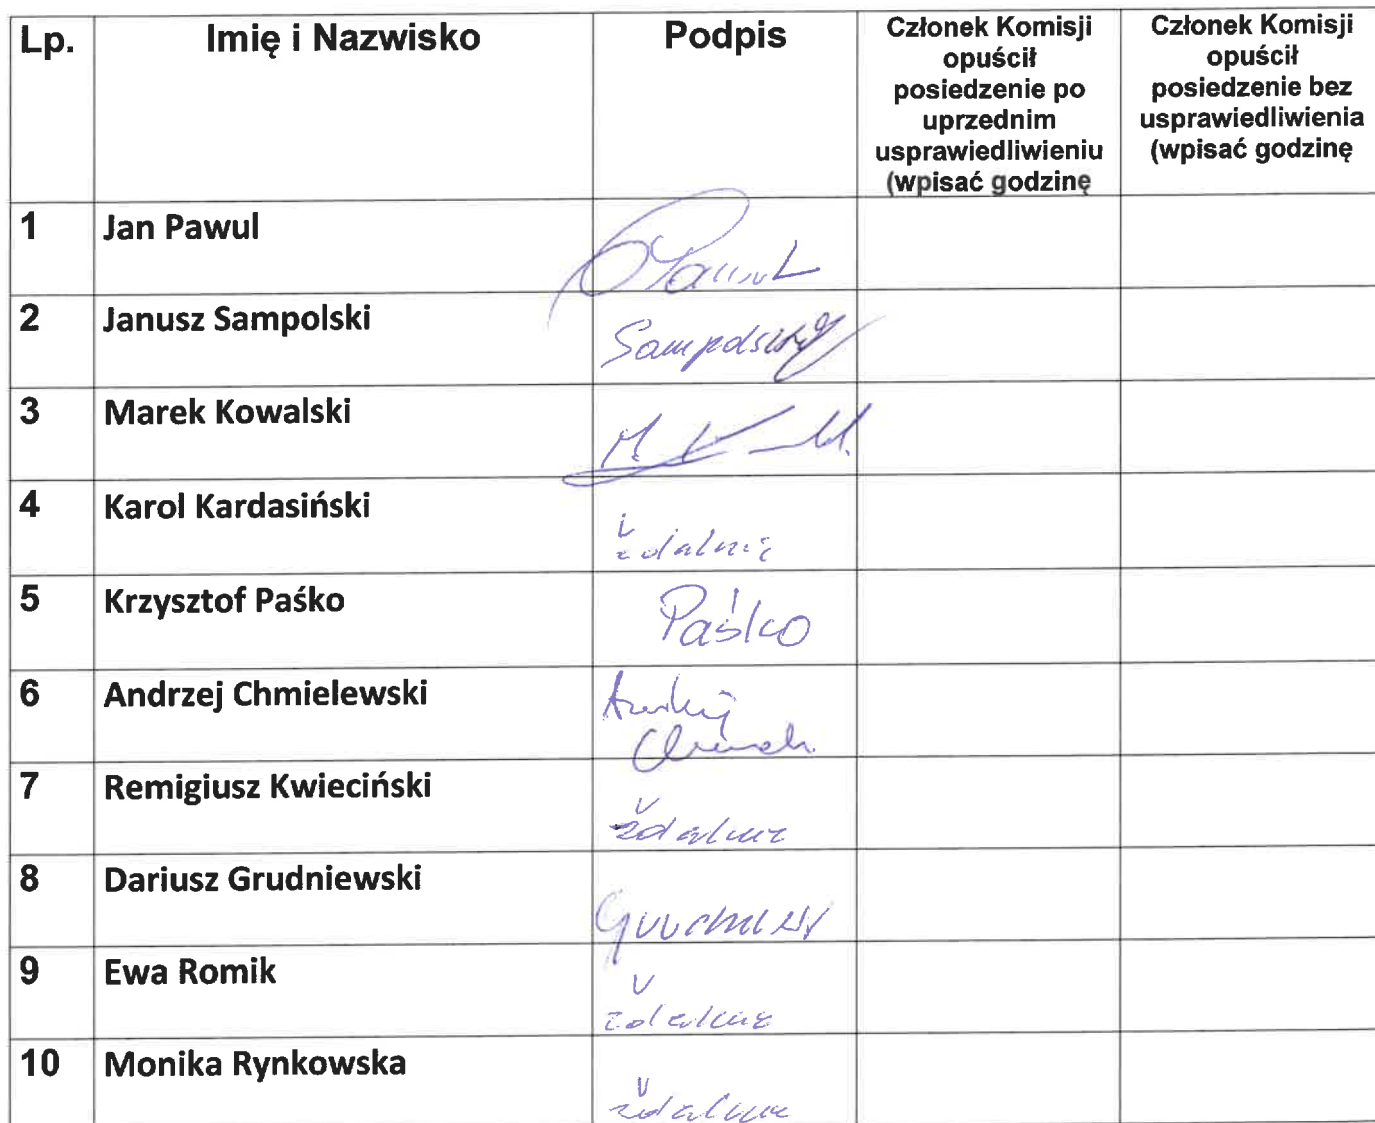 Lp.
Imię i Nazwisko
Podpis
Członek Komisji
opuścił
posiedzenie po
uprzednim
usprawiedliwieniu
(wpisać godzinę
Członek Komisji
opuścił
posiedzenie bez
usprawiedliwienia
(wpisać godzinę
1 Jan Pawul
2 Janusz Sampolski Sampolski
3 Marek Kowalski
4 Karol Kardasiński
v
zdalnie
5 Krzysztof Paśko Paśko
6 Andrzej Chmielewski Andrzej
7 Remigiusz Kwieciński
v
zdalnie
8 Dariusz Grudniewski
9 Ewa Romik
v
zdalnie
10 Monika Rynkowska
v
zdalnie